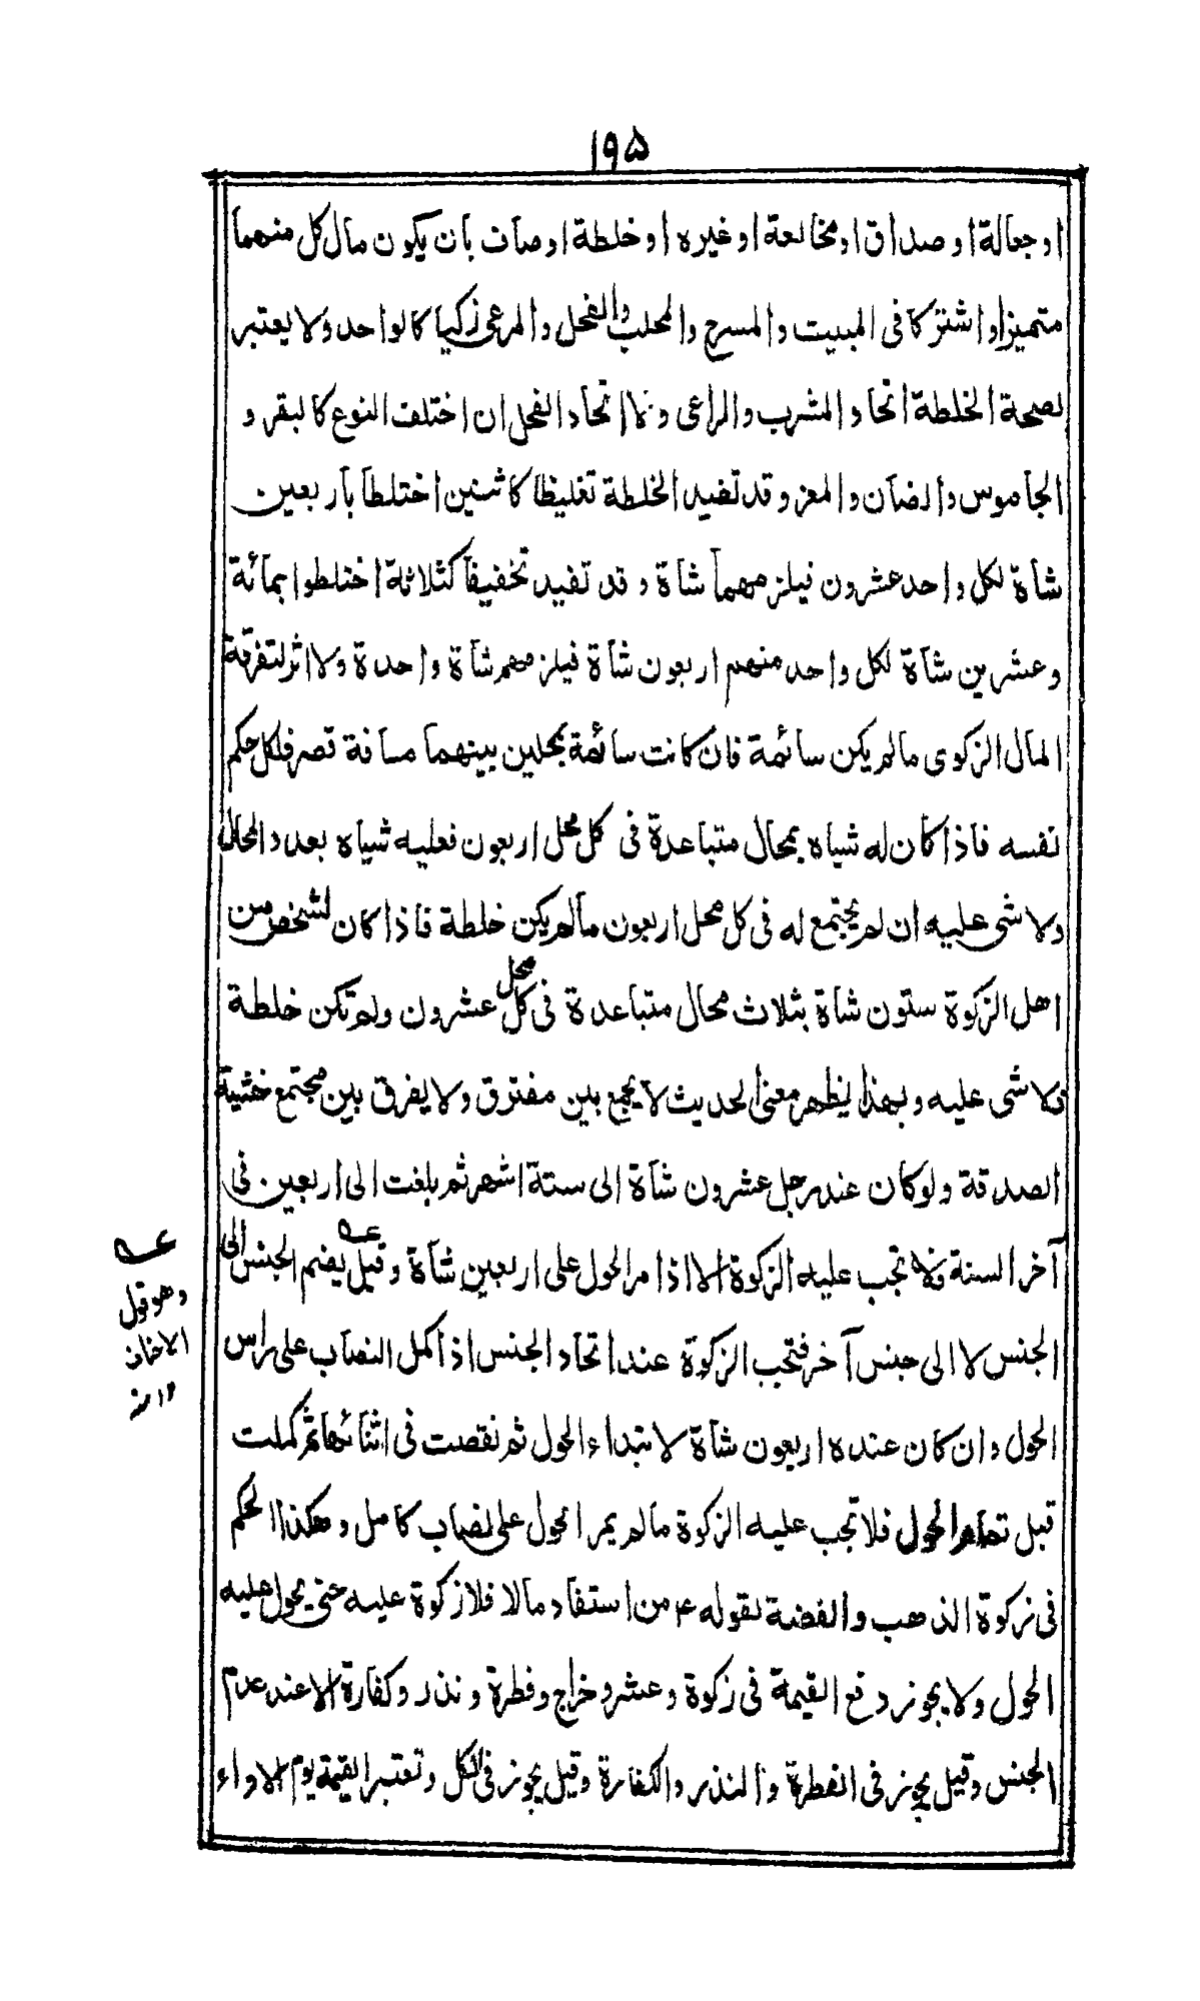 ١٩٥
او جعالة او صداق او مخالعة او غيره او خلطة اوصاف بان يكون مال كل منهما
متميزا واشتركا فى المبيت والمسرح والمحلب والفحل والمرعى زكيا كالواحد ولا يعتبر
لصحة الخلطة اتحاد المشرب والراعى ولا اتحاد الفحل ان اختلف النوع كالبقر و
الجاموس والضان والمعز وقد تفيد الخلطة تغليظا كاثنين اختلطا باربعين
شاة لكل واحد عشرون فيلزمهما شاة وقد تفيد تخفيفا كثلاثة اختلطوا بمائة
وعشرين شاة لكل واحد منهم اربعون شاة فيلزمهم شاة واحدة ولا اثر لتفرقة
المال الزكوى مالم يكن سائمة فان كانت سائمة بمحلين بينهما مسافة قصر فلكل حكم
نفسه فاذا كان له شياه بمحال متباعدة فى كل محل اربعون فعليه شياه بعدد المحال
ولا شى عليه ان لم يجتمع له فى كل محل اربعون مالم يكن خلطة فاذا كان لشخص من
اهل الزكوة ستون شاة بثلاث محال متباعدة فى كل محل عشرون ولم تكن خلطة
فلا شى عليه وبهذا يظهر معنى الحديث لا يجمع بين مفترق ولا يفرق بين مجتمع خشية
الصدقة ولو كان عند رجل عشرون شاة الى ستة اشهر ثم بلغت الى اربعين فى
آخر السنة فلا تجب عليه الزكوة الا اذا مر الحول على اربعين شاة وقيل عــه يضم الجنس الى
الجنس لا الى جنس آخر فتجب الزكوة عند اتحاد الجنس اذا كمل النصاب على راس
الحول وان كان عنده اربعون شاة لابتداء الحول ثم نقصت فى اثنائها ثم كملت
قبل تمام الحول فلا تجب عليه الزكوة مالم يمر الحول على نصاب كامل وهكذا الحكم
فى زكوة الذهب والفضة لقوله ؑ من استفاد مالا فلا زكوة عليه حتى يحول عليه
الحول ولا يجوز دفع القيمة فى زكوة وعشر وخراج وفطرة ونذر وكفارة الا عند عدم
الجنس وقيل يجوز فى الفطرة والنذر والكفارة وقيل يجوز فى الكل وتعتبر القيمة يوم الاداء
عــه
وهو قول
الاحناف
١٢ منه